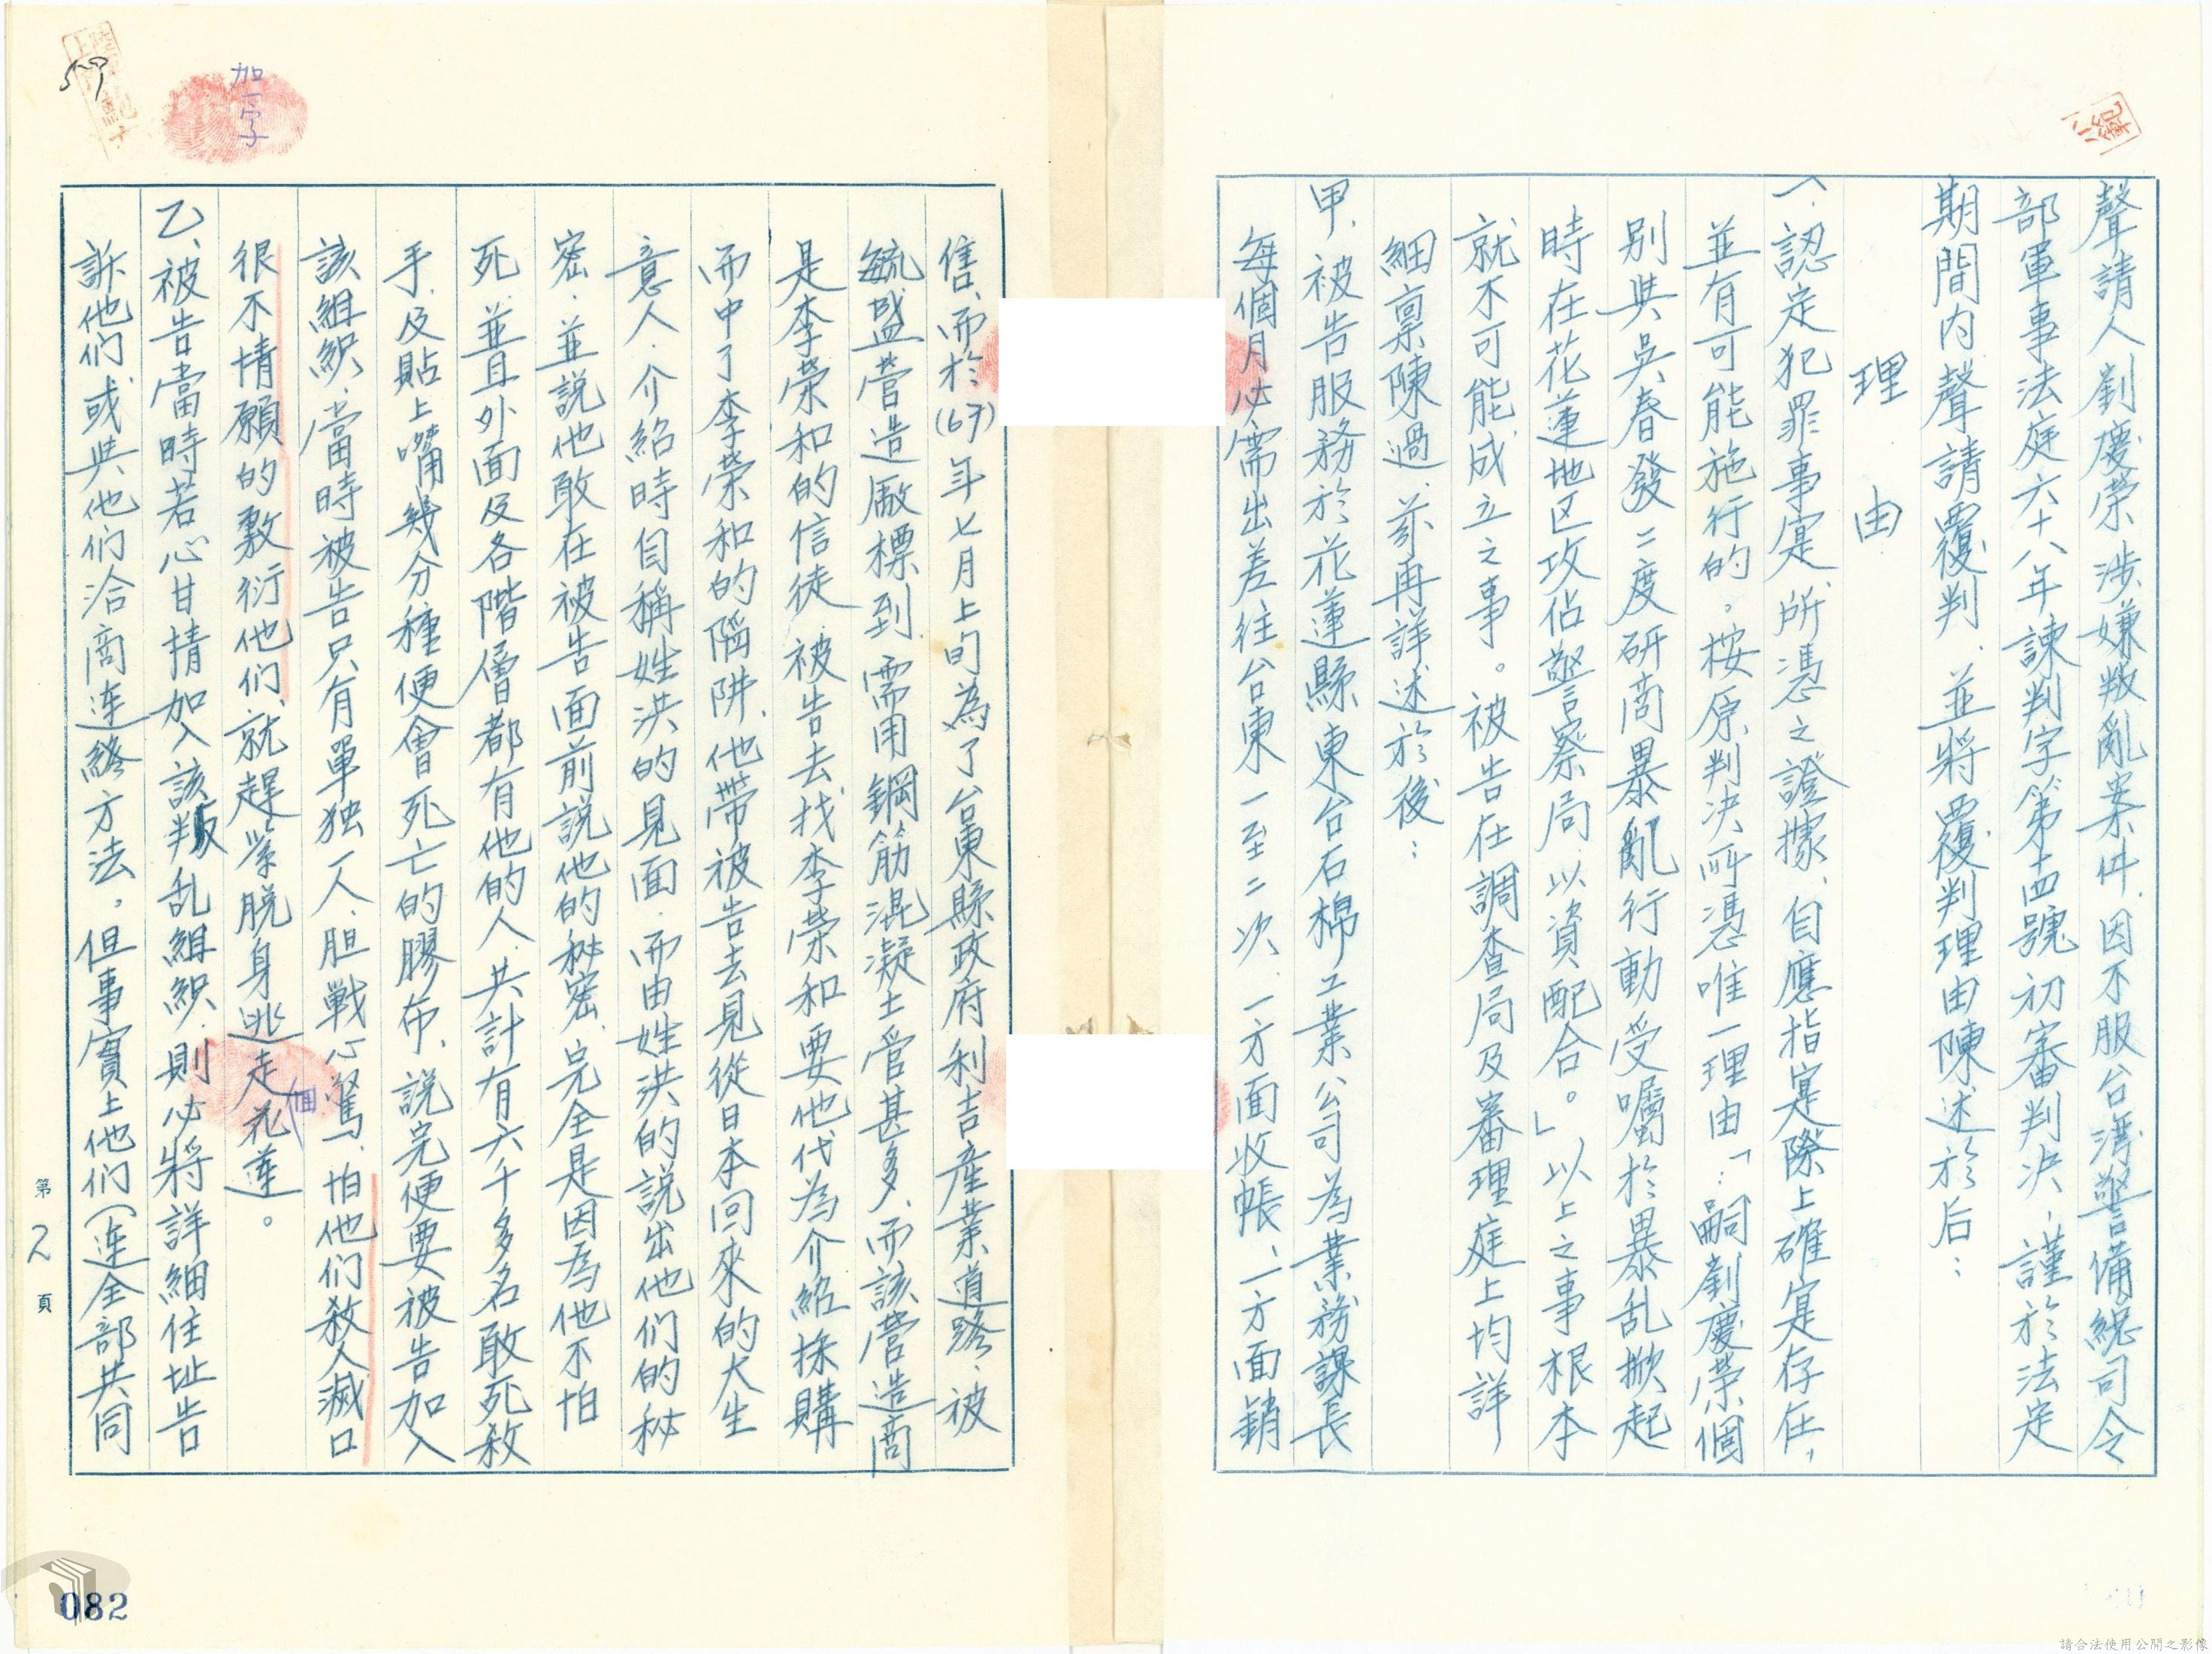 聲請人劉慶榮涉嫌叛亂案件、因不服台湾警備總司令
部軍事法庭六十八年諫判字第十四號初審判决，謹於法定
期間内聲請覆判、並將覆判理由陳述於后：
理由
一、認定犯罪事寔、所憑之證據、自應指寔際上確寔存在，
並有可能施行的。按原判决所憑唯一理由「：嗣劉慶榮個
别與吳春發二度研商暴亂行動受囑於暴乱掀起
時在花蓮地区攻佔警察局以資配合。」以上之事根本
就不可能成立之事。被告在調查局及審理庭上均詳
細禀陳過、茲再詳述於後：
甲、被告服務於花蓮縣東台石棉工業公司為業務課長
每個月必需出差往台東一至二次、一方面收帳、一方面銷
售、而於(67)年七月上旬為了台東縣政府利吉產業道路、被
毓盛營造廠標到需用鋼筋混凝土管甚多、而該營造商
是李荣和的信徒、被告去找李荣和要他代為介紹採購
而中了李荣和的陷阱、他帶被告去見從日本回來的大生
意人、介紹時自稱姓洪的見面、而由姓洪的説出他们的秘
密、並説他敢在被告面前説他的秘密、完全是因為他不怕
死、並且外面及各階層都有他的人、共計有六千多名敢死殺
手、及貼上嘴角幾分種便會死亡的膠布、説完便要被告加入
該組織、當時被告只有單独一人、胆戰心驚、怕他们殺人滅口
很不情願的敷衍他们、就趕緊脱身逃走回花蓮。
乙、被告當時若心甘情加入該叛乱組織、則必將詳細住址告
訴他们或與他们洽商連絡方法。但事實上他们(連全部共同
加一字
59
第2頁
082
請合法使用公開之影像